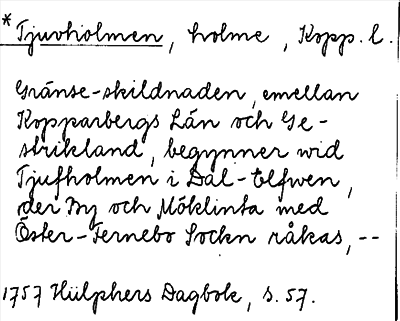 *Tjuvholmen, holme, Kopp. l.
Gränse-skildnaden, emellan
Kopparbergs Län och Ge-
strikland, begynner wid
Tjufholmen i Dal-Elfwen,
der By och Möklinta med
Öster-Fernebo Sockn råkas, --
1757 Hülphers Dagbok, s. 57.